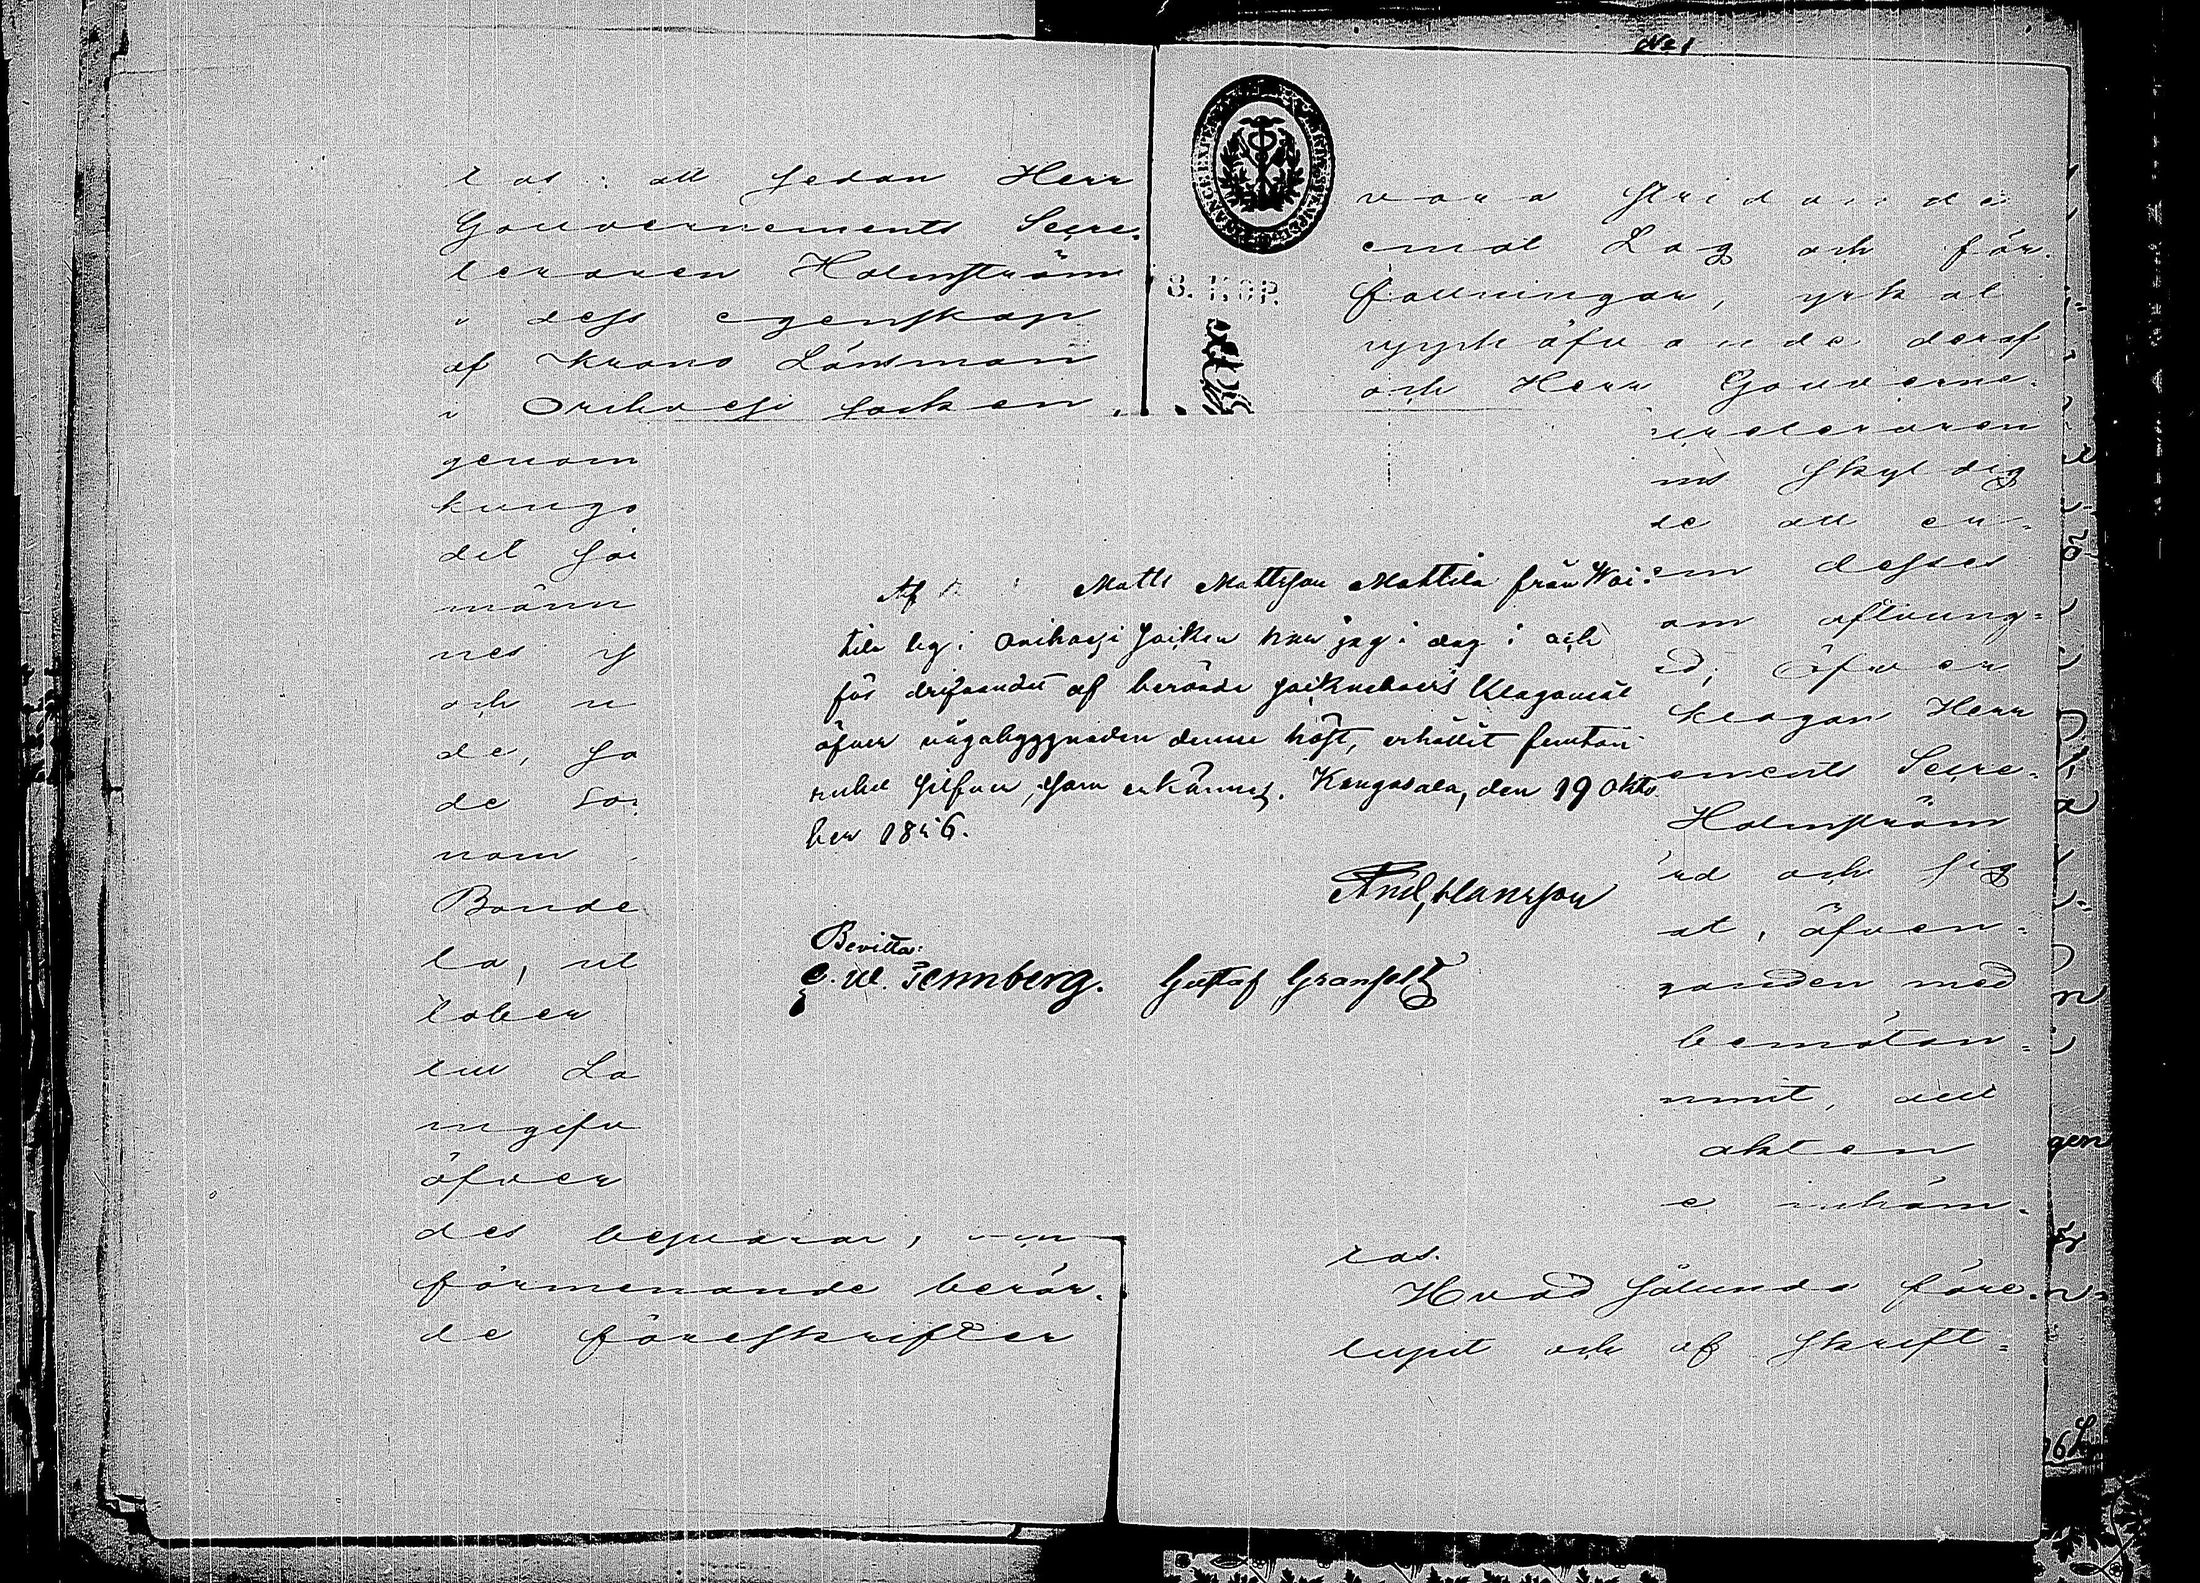 No 1
ras: att sedan Herr
Gouvernements Secre-
teraren Holmström
i dess egenskap
af Krono Länsman
i Orihvesi socken,
genom
kungö
det för
männ
nes
och u
de, so
de
nom
Bonde
la, ut
tober
till La
ingifv
öfver
des besvärar,
förmenande berör-
de föreskrifter
8. KOP.
vara stridande
emot Lag och för-
fattningar, yrkat
upphäfvande deraf
och Herr Gouverne-
ecreteraren
ms skyldig
de att er-
em desses
om aftvung-
ed; öfver
klagan Herr
ements Secre-
Holmström
rd och sig
at, äfven-
ganden med
bemötan-
mnit, allt
akten
e inhäm-
tas.
Hvad sålunda före-
lupit och af skrift-
Af Matts Mattsson Mattila från Wai-
tila by i Orihvesi socken har jag i dag i och
för drifvandet af berörde sockneboers klagomål
öfver vägabyggnaden denne höst, erhållit femton
rubel silfver, som erkännes. Kangasala, den 19 Okto-
ber 1856.
And, Hansson
Bevitta:
C. W. Tennberg. Gustaf Granfelt